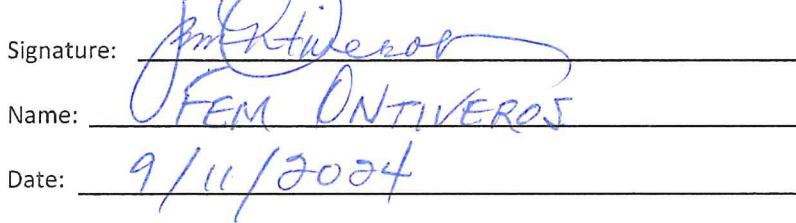 Signature:
Name: FEM ONTIVEROS
Date: 9/11/2024